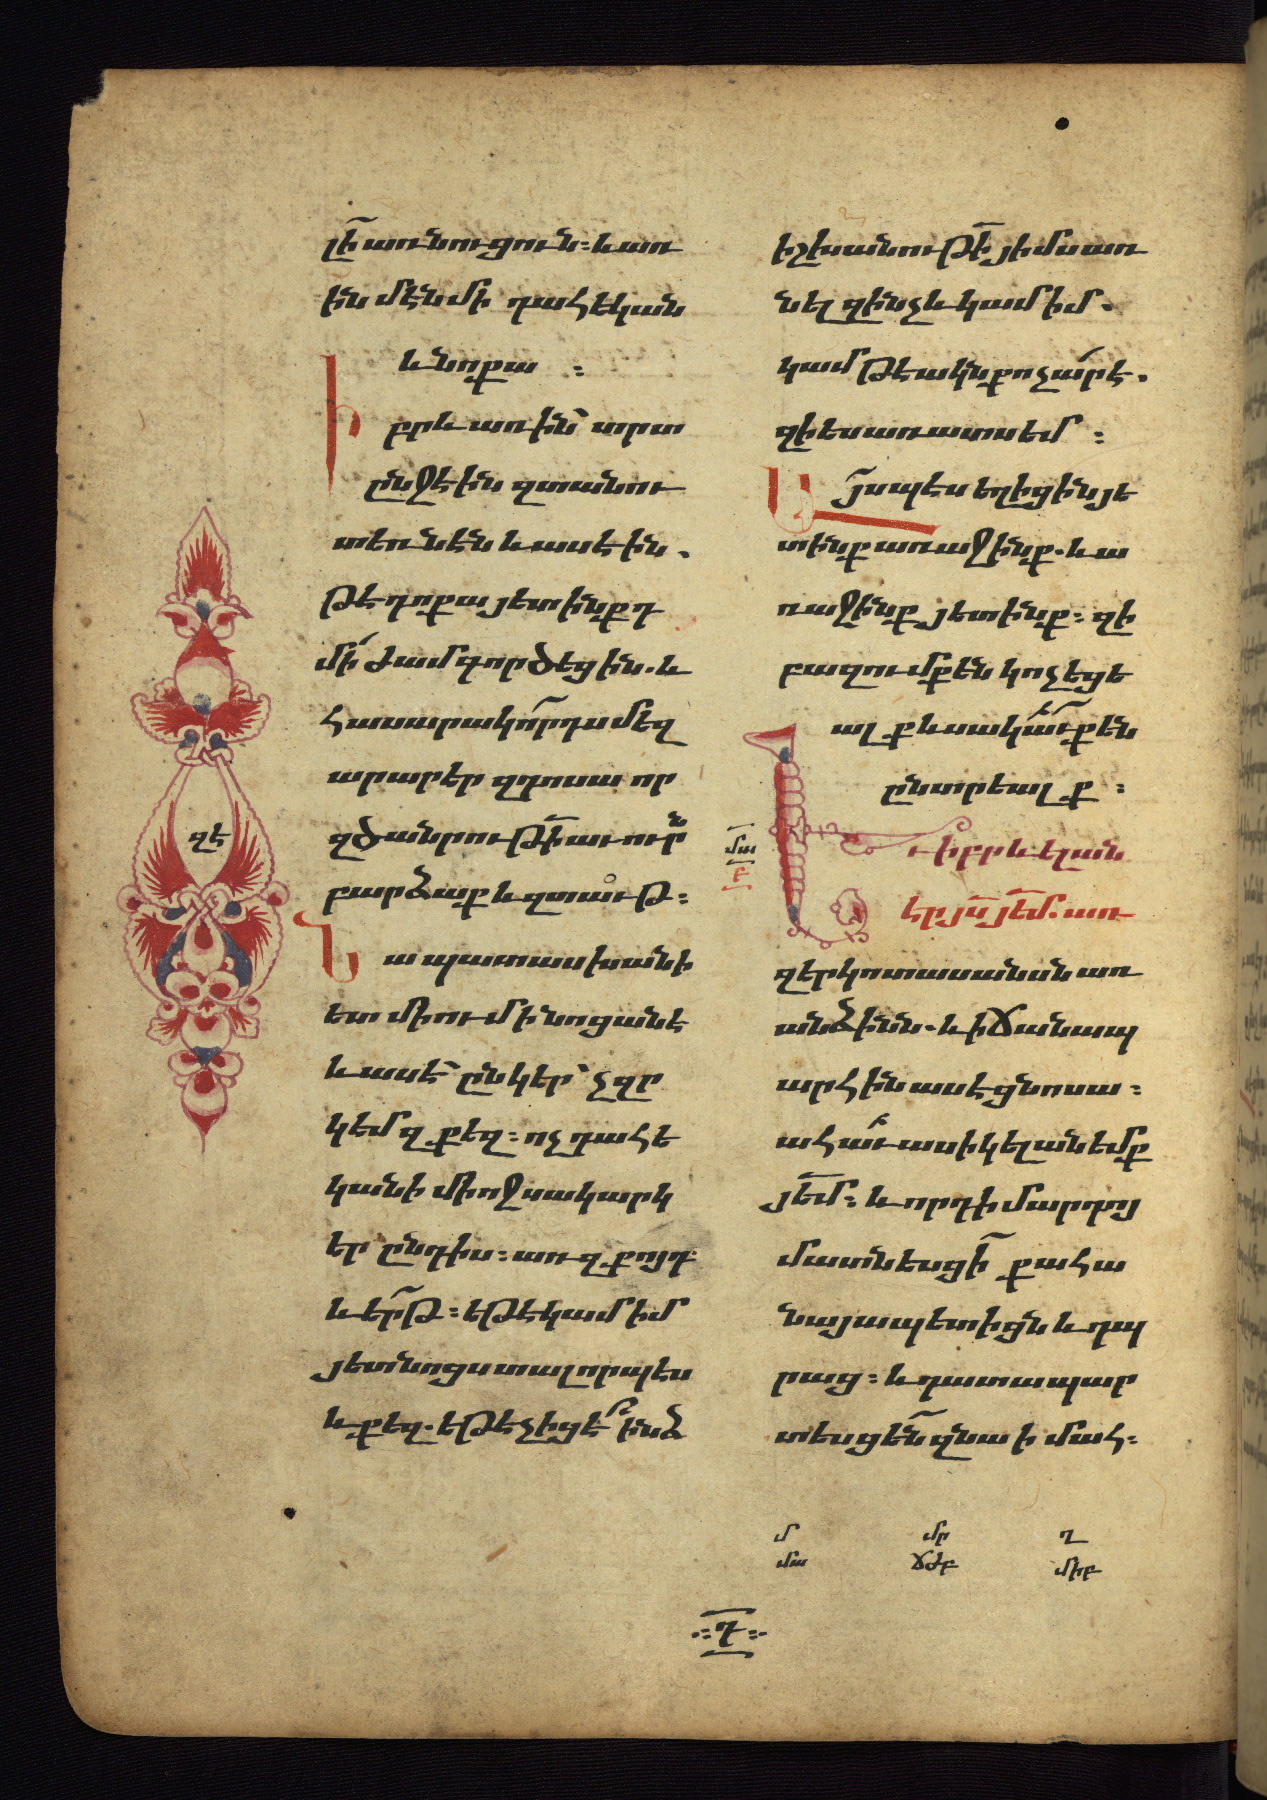 լի առնուցուն։ և առ
ին մէն մի դահեկան
և նոքա ։
Իբրև առին՝ տրտ
ընջէին զտանու
տեռնէն և ասէին.
թէ դոքա յետինքդ
մի ժամ գործեցին. և
հասարակորդս մեզ
արարեր զդոսա որ
զծանրութի աւուրն
բարձաք և զտաւթ։
Նա պատասխանի
ետ միում ի նոցանէ
և ասէ՝ ընկեր՝ չզր
կեմ զքեզ։ ոչ դահե
կանի միոջ սակարկ
եր ընդիս։ առ զքոյդ
և երթ։ եթէ կամ իմ
յետնոցս տալ որպէս
և քեզ. եթե չիցէ ինձ
իշխանութի յիմս առ
նել զինչ և կամիմ.
կամ թե ակն քո չար է.
զի ես առատս եմ ։
Այսպէս եղիցին յե
տինք առաջինք. և ա
ռաջինք յետինք։ զի
բազում քեն կոչեցե
ալք և սակաւք են
ընտրեալք ։
զէ
մա
բ
Ւ իբրև ելան
էր յս յեմ. առ
զերկոտասանսն առ
անձինն. և ի ճանապ
արհին ասէ ցնոսա։
ահաւասիկ ելանեմք
յեմ։ և որդի մարդոյ
մատնեսցի քահա
նայապետիցն և դպ
րաց։ և դատապար
տեսցեն զնա ի մահ։
մ մր ղ
մա ճժբ միբ
դ